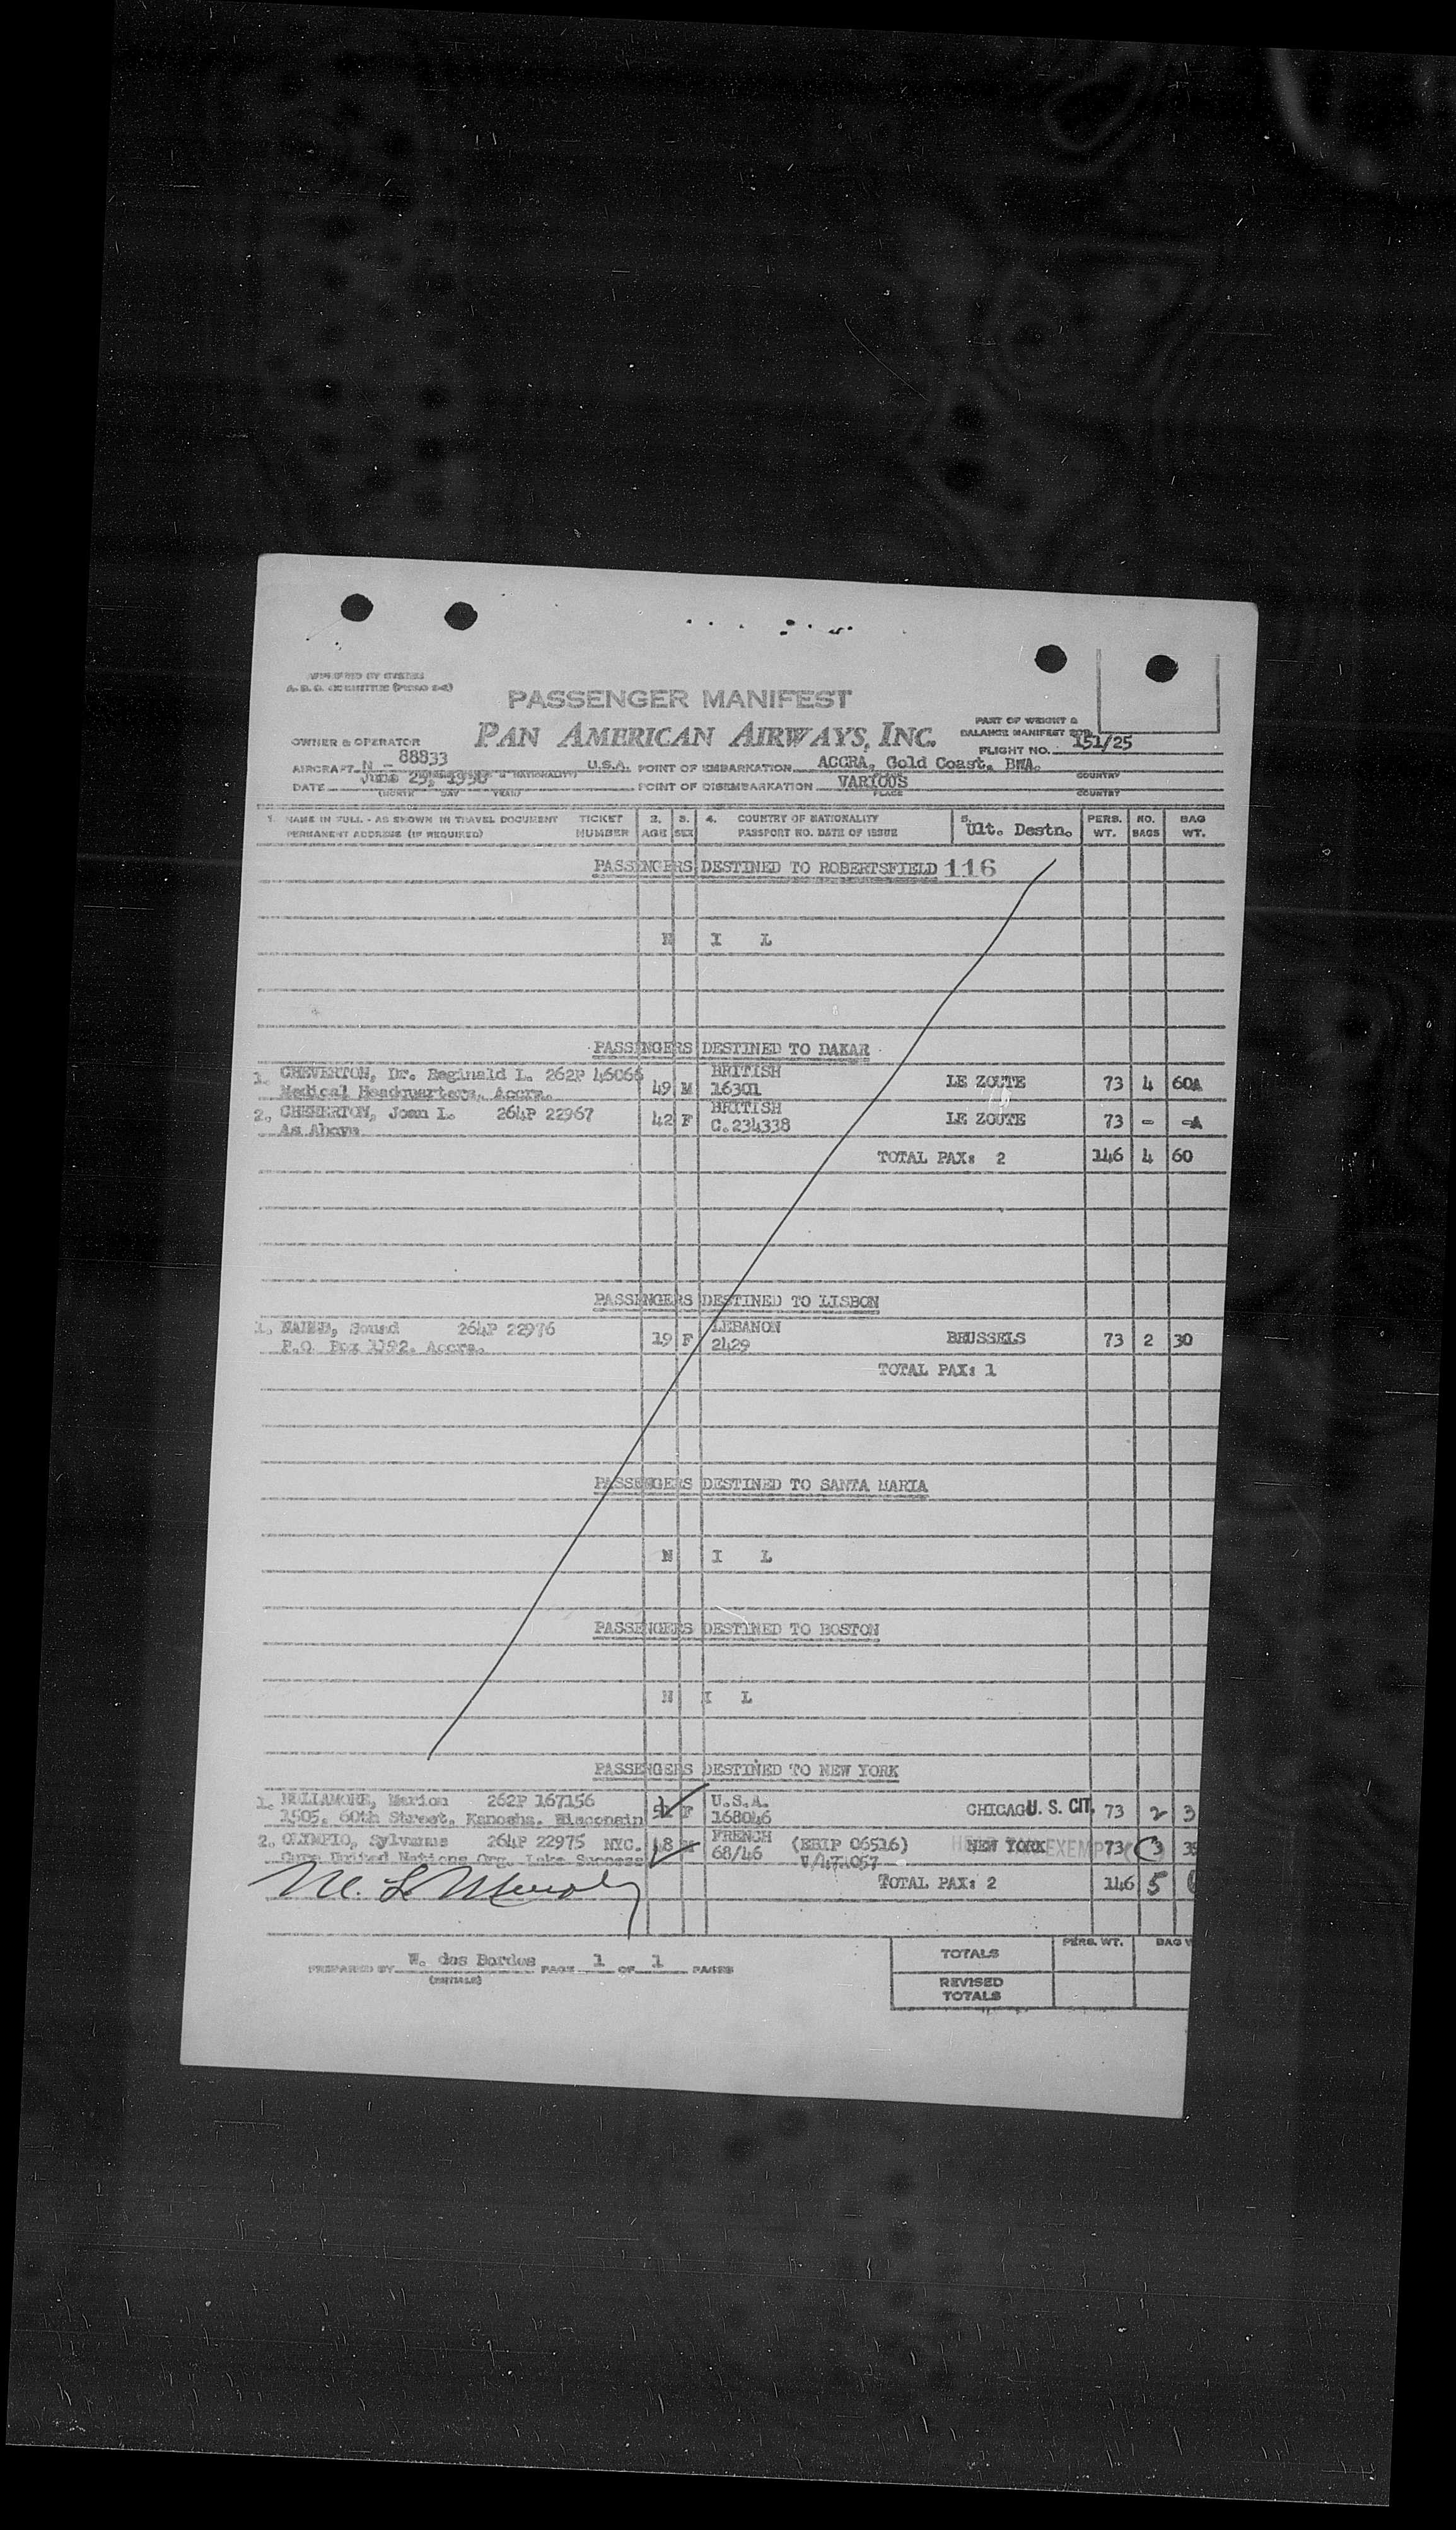 PASSENGER MANIFEST
PAN AMERICAN AIRWAYS, INC.
PART OF WEIGHT &
BALANCE MANIFEST
OWNER & OPERATOR
FLIGHT NO. 151/25
AIRCRAFT N - 88833 U.S.A. POINT OF EMBARKATION ACCRA, Gold Coast. BWA. COUNTRY
DATE June 25, 1950 POINT OF DISEMBARKATION VARIOUS
(MONTH DAY YEAR) PLACE COUNTRY
1. NAME IN FULL - AS SHOWN IN TRAVEL DOCUMENT TICKET 2. 3. 4. COUNTRY OF NATIONALITY 5. Ult. Destn. PERS. NO. BAG
PERMANENT ADDRESS (IF REQUIRED) NUMBER AGE SEX PASSPORT NO. DATE OF ISSUE WT. BAGS WT.
PASSENGERS DESTINED TO ROBERTSFIELD 116
N I L
PASSENGERS DESTINED TO DAKAR
1. CHEVERTON, Dr. Reginald L. 262P 46066 49 M BRITISH LE ZOUTE 73 4 60A
Medical Headquarters, Accra. 16301
2. CHEVERTON, Joan L. 264P 22967 42 F BRITISH LE ZOUTE 73 - -A
As Above C.234338
TOTAL PAX: 2 146 4 60
PASSENGERS DESTINED TO LISBON
1. 264P 22976 19 F LEBANON BRUSSELS 73 2 30
P.O Box 1192. Accra. 2429
TOTAL PAX: 1
PASSENGERS DESTINED TO SANTA MARIA
N I L
PASSENGERS DESTINED TO BOSTON
N I L
PASSENGERS DESTINED TO NEW YORK
1. Marion 262P 167156 F U.S.A. CHICAGO U. S. CIT. 73 2 3
1505, 60th Street, Kanosha. Wisconsin 168046
2. OLYMPIO, Sylvanus 264P 22975 NYC. 48 FRENCH (EHIP 06516) NEW YORK EXEMPT 73 3 39
Care United Nations Org. Lake Success 68/46 V/471057
TOTAL PAX: 2 146 5
PREPARED BY W. des Bordes PAGE 1 OF 1 PAGES
(INITIALS)
PERS. WT. BAG
TOTALS
REVISED
TOTALS